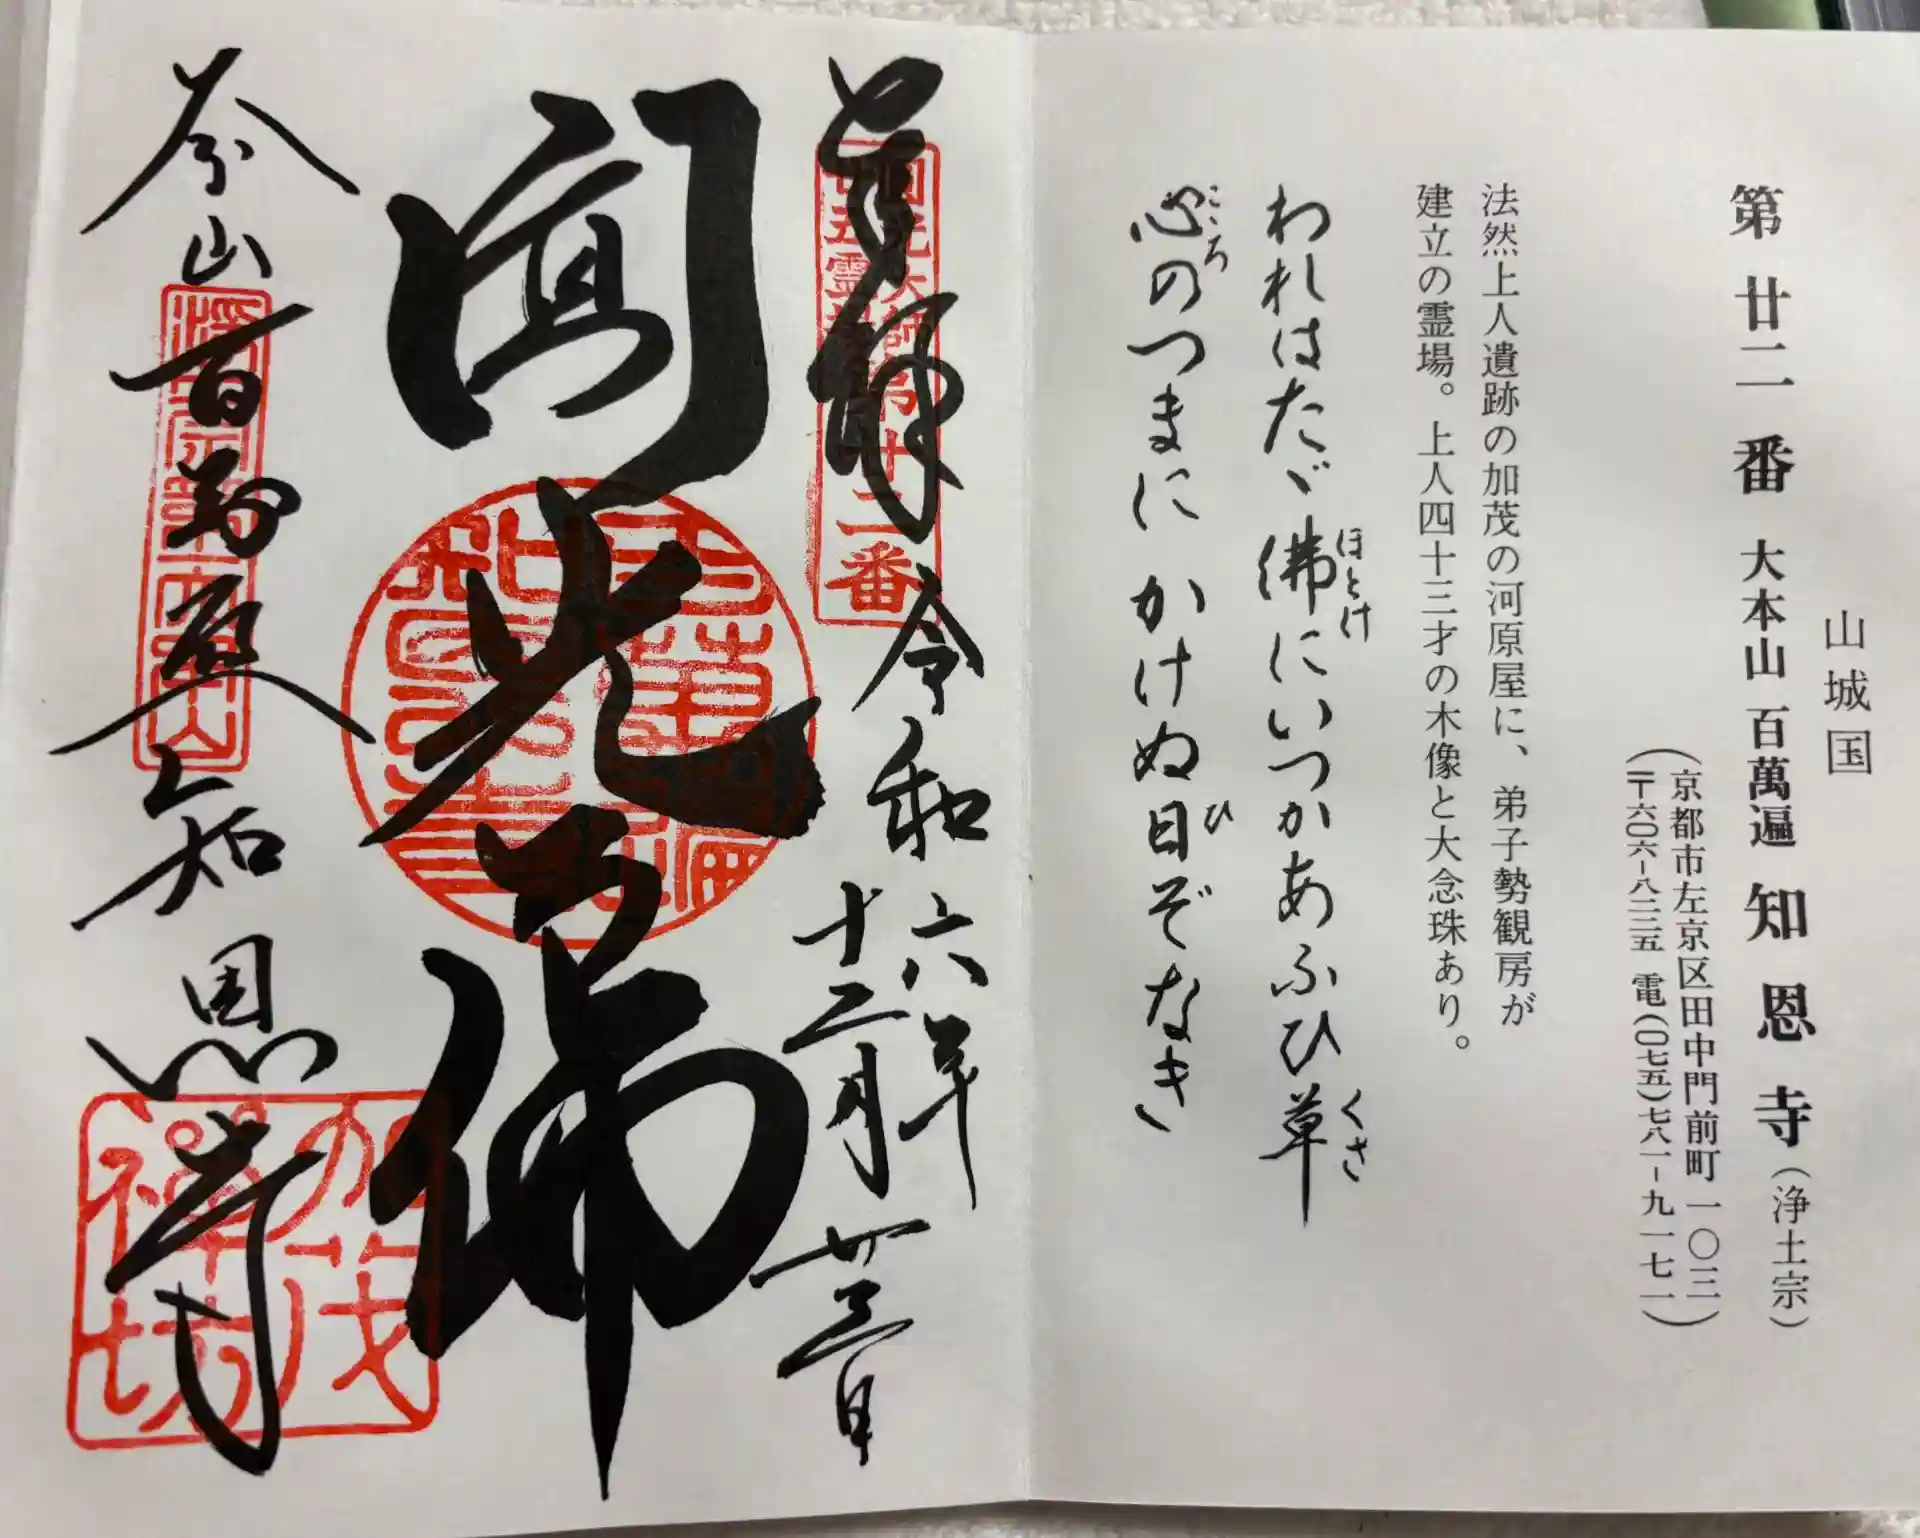 山城国
第廿二番 大本山 百萬遍 知恩寺(浄土宗)
(京都市左京区田中門前町一〇三)
(〒六〇六-八二二五 電(〇七五)七八一-九一七一)
法然上人遺跡の加茂の河原屋に、弟子勢観房が
建立の霊場。上人四十三才の木像と大念珠あり。
われはたゞ佛にいつかあふひ草
ほとけ
くさ
心のつまにかけぬ日ぞなき
こころ
ひ
奉拝 令和六年
十二月廿三日
圓光大師第廿二番
廿五霊場
圓光大師
本山百萬遍知恩寺
浄土宗大本山
百萬遍知恩寺
加茂
禅坊